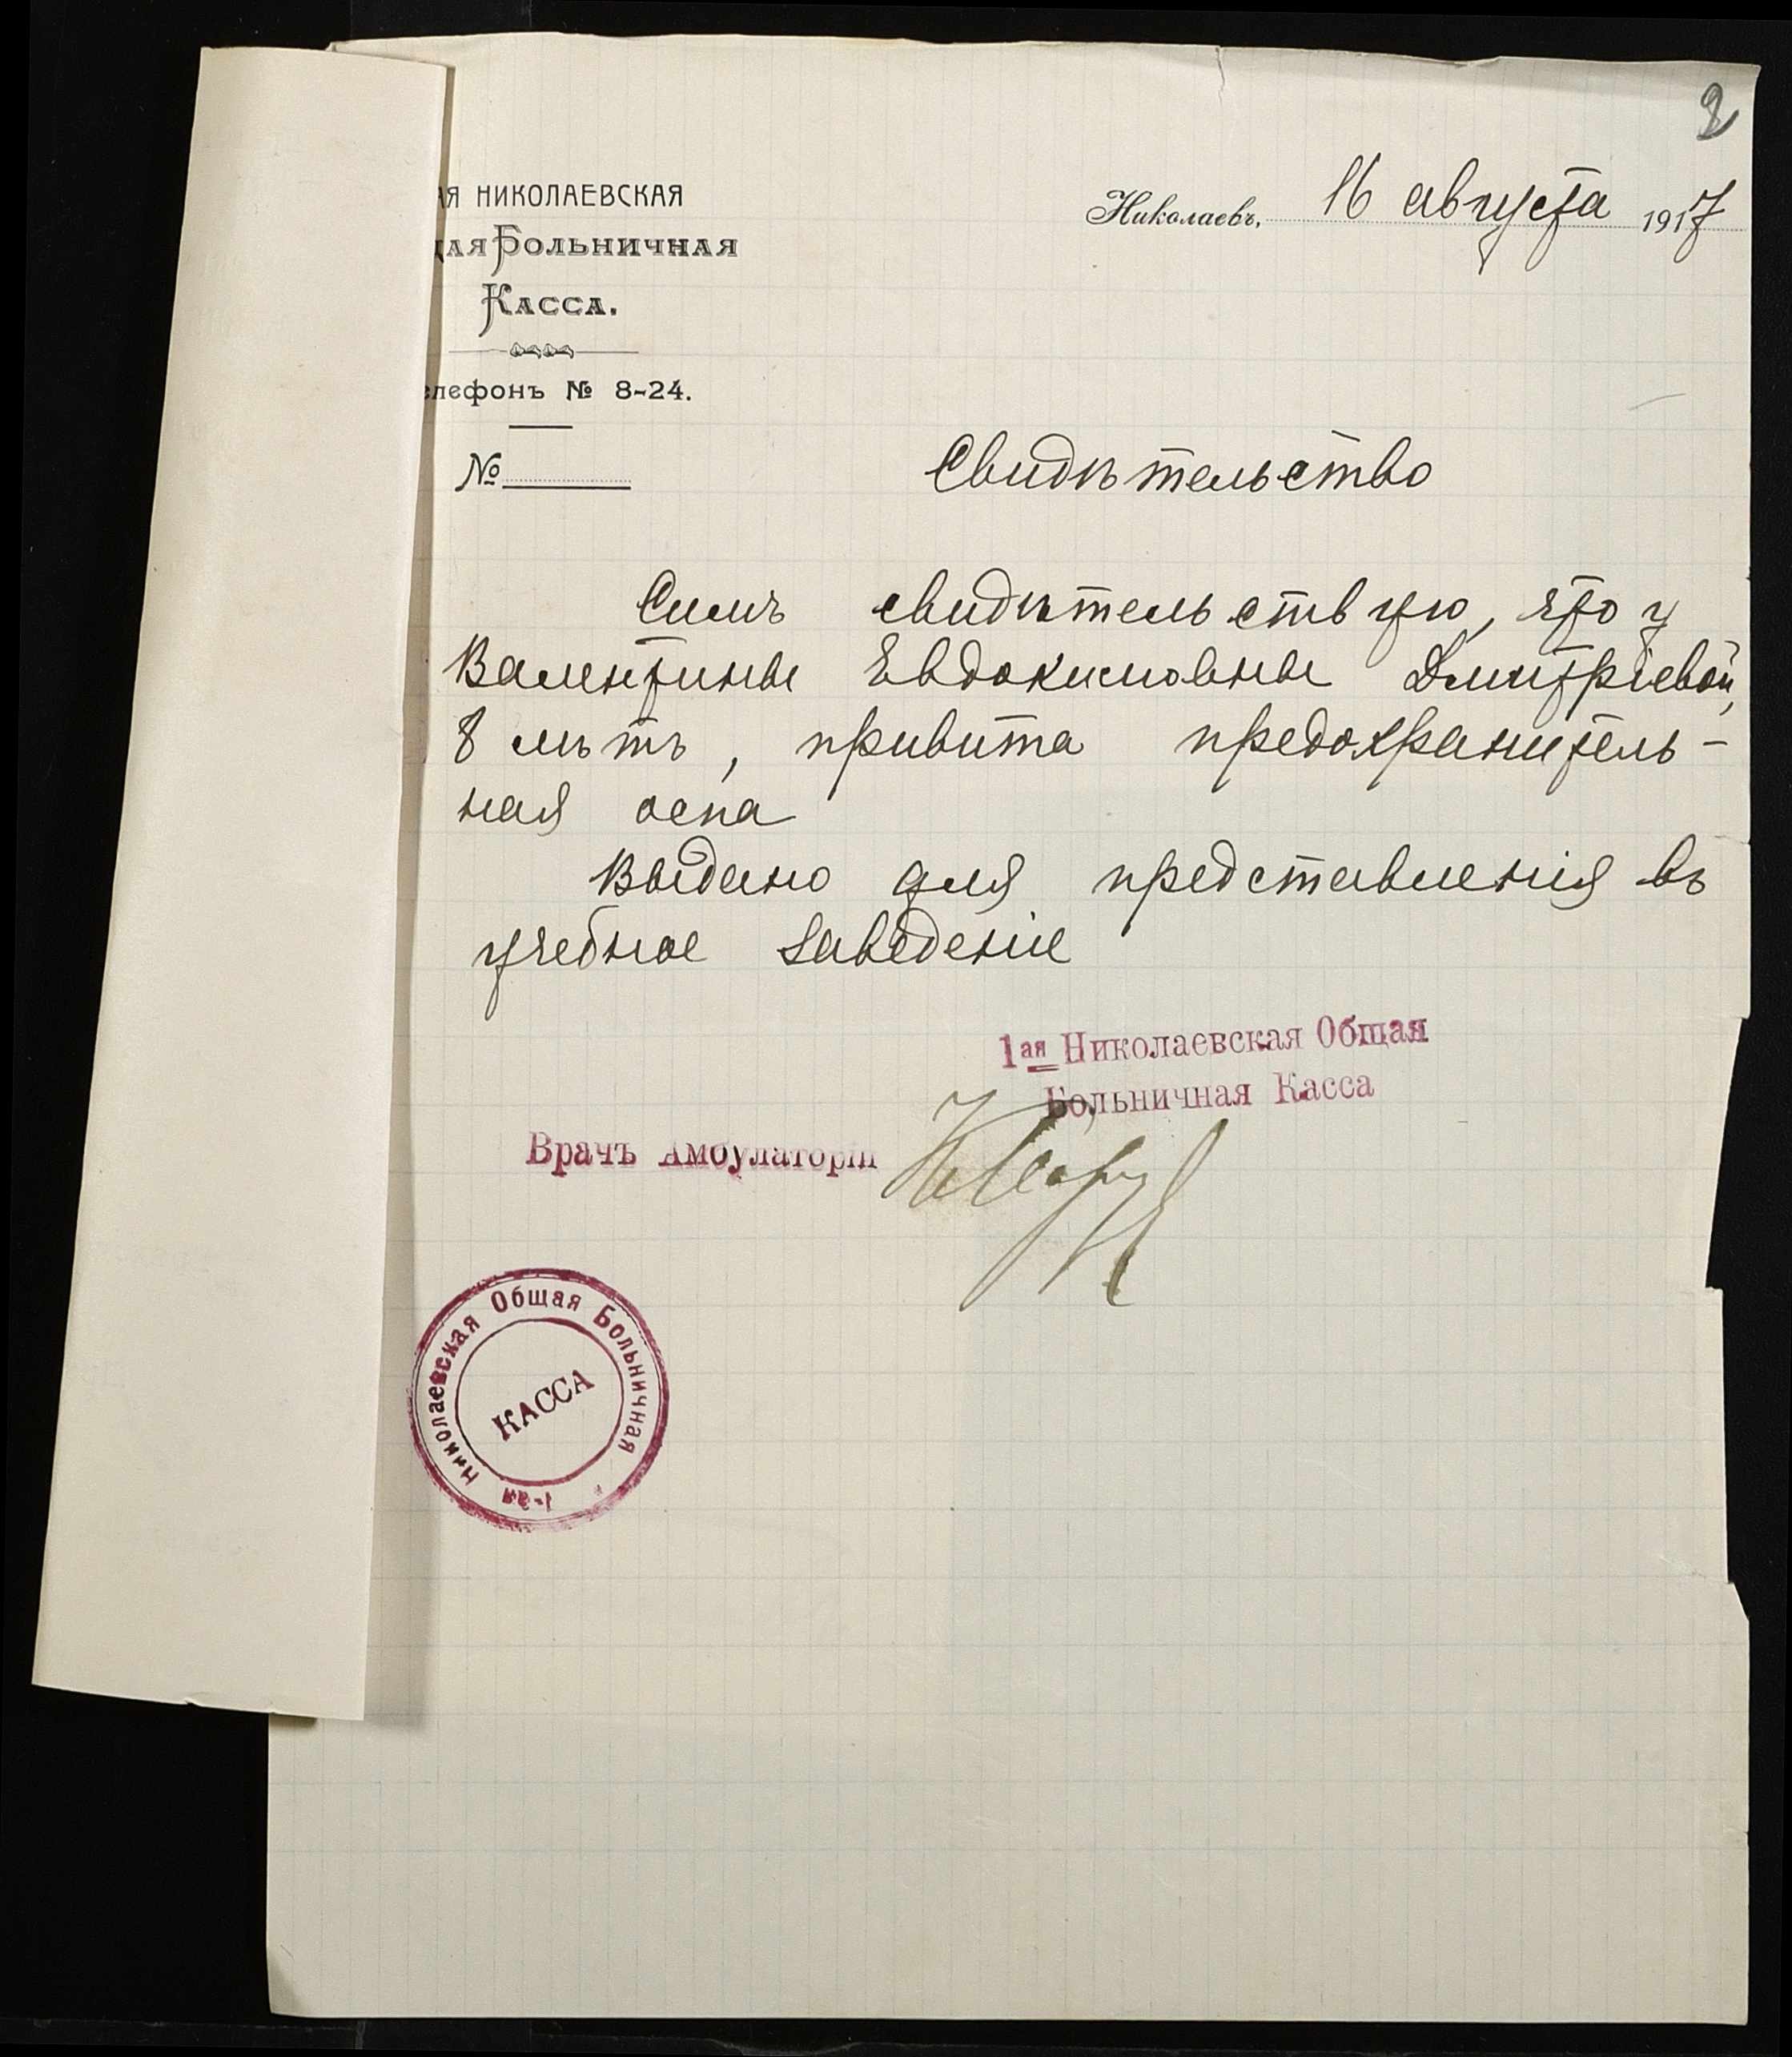 2
АЯ НИКОЛАЕВСКАЯ
Больничная
Касса.
елефонъ № 8-24.
№
Николаевъ, 16 августа 1917
Свидѣтельство
Симъ свидѣтельствую, что у
Валентины Евдокимовны Дмитріевой,
8 лѣтъ, привита предохранитель-
ная оспа
Выдано для представленія въ
учебное заведеніе
1ая Николаевская Общая
Больничная Касса
Врачъ Амбулаторіи
1-ая Николаевская Общая Больничная
КАССА